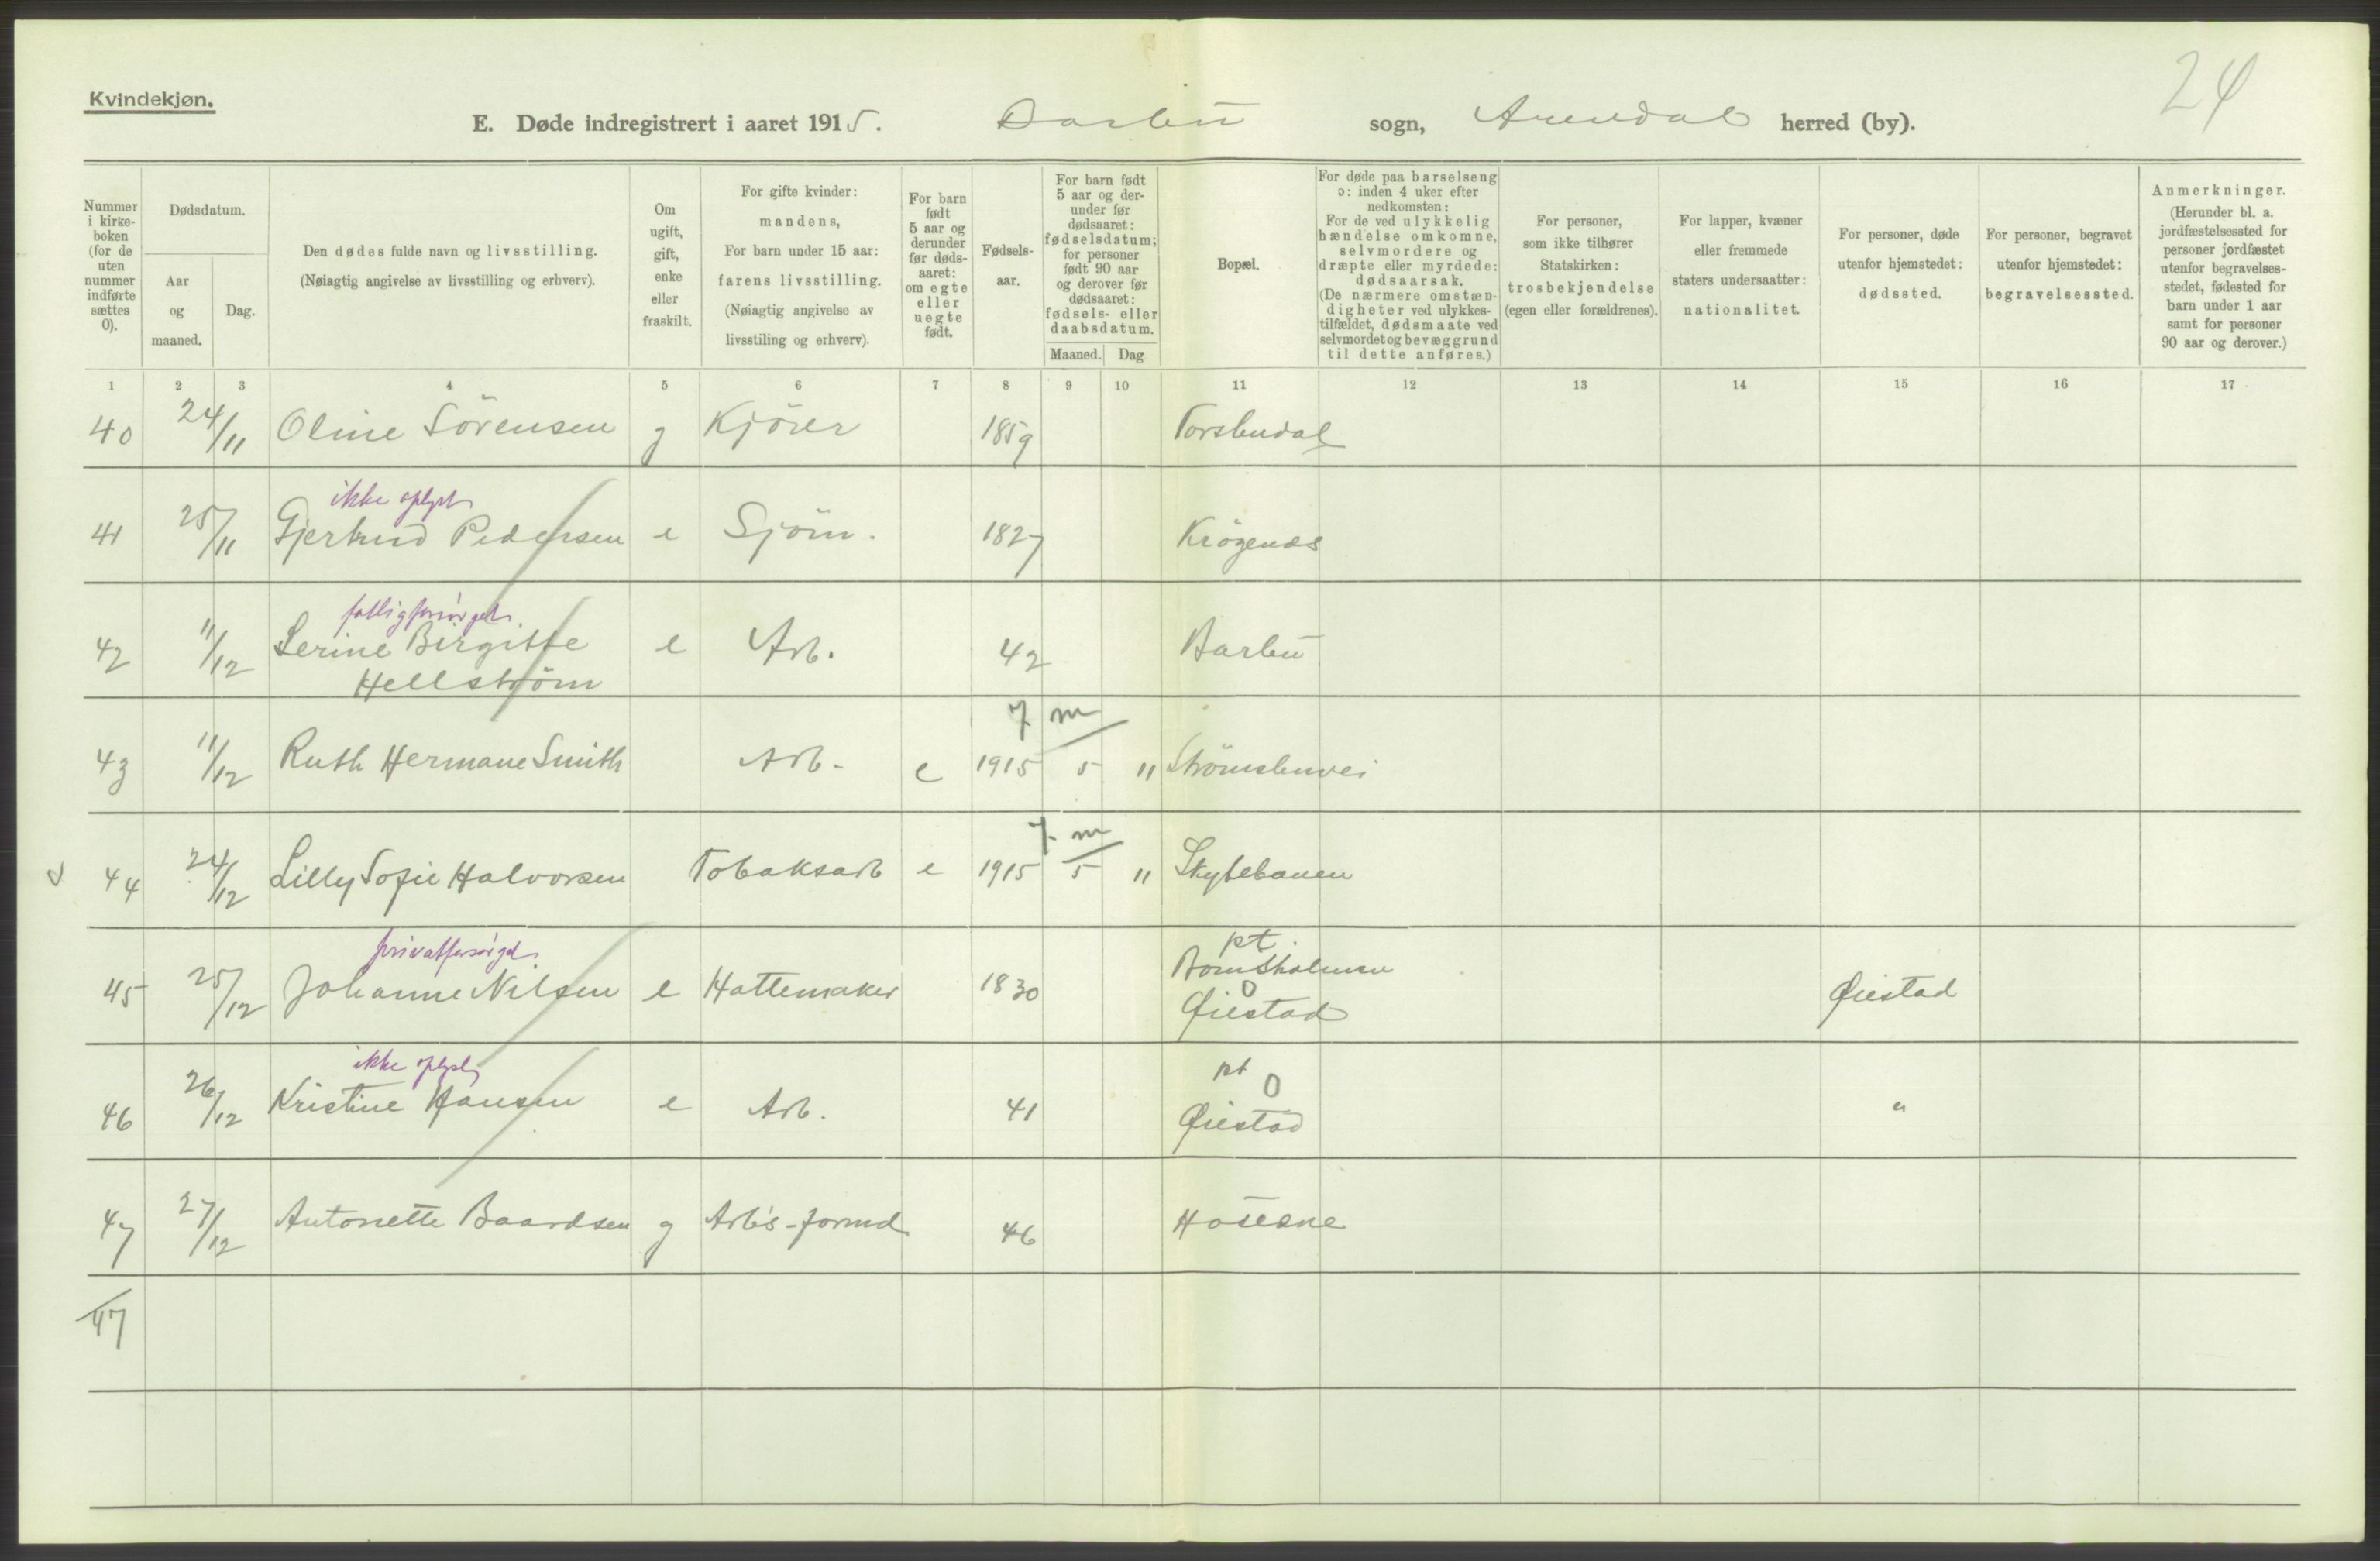 24
Kvindekjøn.
E. Døde indregistrert i aaret 1915. Barbu sogn, Arendal herred (by).
Nummer i kirkeboken (for de uten nummer indførte sættes 0).
Dødsdatum.
Aar og maaned.
Dag.
Den dødes fulde navn og livsstilling.
(Nøiagtig angivelse av livsstilling og erhverv).
Om ugift, gift, enke eller fraskilt.
For gifte kvinder: mandens,
For barn under 15 aar: farens livsstilling.
(Nøiagtig angivelse av livsstiling og erhverv).
For barn født 5 aar og derunder før dødsaaret: om egte eller uegte født.
Fødselsaar.
For barn født 5 aar og derunder før dødsaaret: fødselsdatum; for personer født 90 aar og derover før dødsaaret: fødsels- eller daabsdatum.
Maaned. Dag
Bopæl.
For døde paa barselseng ɔ: inden 4 uker efter nedkomsten:
For de ved ulykkelig hændelse omkomne, selvmordere og dræpte eller myrdede: dødsaarsak.
(De nærmere omstændigheter ved ulykkestilfældet, dødsmaate ved selvmordet og bevæggrund til dette anføres.)
For personer, som ikke tilhører Statskirken: trosbekjendelse (egen eller forældrenes).
For lapper, kvæner eller fremmede staters undersaatter: nationalitet.
For personer, døde utenfor hjemstedet: dødssted.
For personer, begravet utenfor hjemstedet: begravelsessted.
Anmerkninger.
(Herunder bl. a. jordfæstelsessted for personer jordfæstet utenfor begravelsesstedet, fødested for barn under 1 aar samt for personer 90 aar og derover.)
1 2 3 4 5 6 7 8 9 10 11 12 13 14 15 16 17
40 24/11 Oline Sörensen g Kjörer 1859 Torsbudal
ikke oplyst
41 25/11 Gjertrud Pedersen e Sjöm. 1827 Krögenæs
fattigforsörget
42 11/12 Serine Birgitte e Arb. 42 Barbu
Hellström
7 m
43 11/12 Ruth Hermane Smith Arb. e 1915 5 " Strömsbuvei
7 m
44 24/12 Lilly Sofie Halvorsen Tobaksarb e 1915 5 " Skytebanen
privatforsörget pt.
45 25/12 Johanne Nilsen e Hattemaker 1830 Bomsholmen Øiestad
0
Øiestad
ikke oplyst pt
0
46 26/12 Kristine Hansen e Arb. 41 Øiestad "
47 27/12 Antonette Baardsen g Arb's-formd 46
47